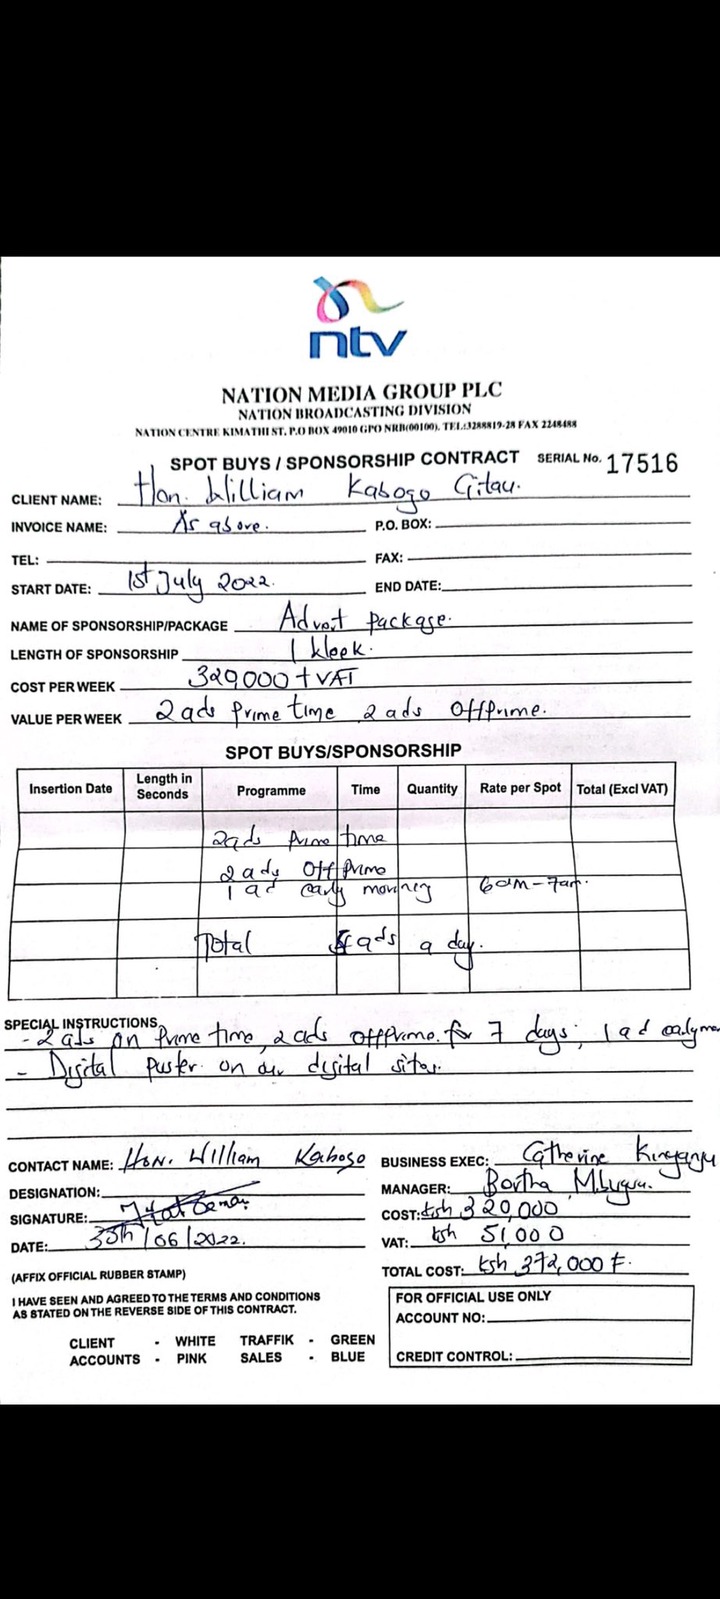 ntv
NATION MEDIA GROUP PLC
NATION BROADCASTING DIVISION
NATION CENTRE KIMATHI ST. P.O BOX 49010 GPO NRB(00100). TEL:3288819-28 FAX 2248488
SPOT BUYS / SPONSORSHIP CONTRACT SERIAL No. 17516
CLIENT NAME: Hon. William Kabogo Gitau.
INVOICE NAME: As above. P.O. BOX:
TEL: FAX:
START DATE: 1st July 2022. END DATE:
NAME OF SPONSORSHIP/PACKAGE Advert package.
LENGTH OF SPONSORSHIP 1 Week.
COST PER WEEK 320,000 + VAT
VALUE PER WEEK 2 ads prime time 2 ads offprime.
SPOT BUYS/SPONSORSHIP
Insertion Date Length in Seconds Programme Time Quantity Rate per Spot Total (Excl VAT)
2 ads prime time
2 ads off prime
1 ad early morning 6am-7am.
Total ads a day.
SPECIAL INSTRUCTIONS
- 2 ads on prime time, 2 ads offprime for 7 days, 1 ad early
- Digital poster on our digital sites.
CONTACT NAME: Hon. William Kabogo BUSINESS EXEC: Catherine
DESIGNATION: MANAGER: Mbugua.
SIGNATURE: COST: Ksh 320,000
DATE: 30th/06/2022. VAT: Ksh 51,000
(AFFIX OFFICIAL RUBBER STAMP) TOTAL COST: Ksh 372,000
I HAVE SEEN AND AGREED TO THE TERMS AND CONDITIONS
AS STATED ON THE REVERSE SIDE OF THIS CONTRACT.
FOR OFFICIAL USE ONLY
ACCOUNT NO:
CREDIT CONTROL:
CLIENT - WHITE TRAFFIK - GREEN
ACCOUNTS - PINK SALES - BLUE